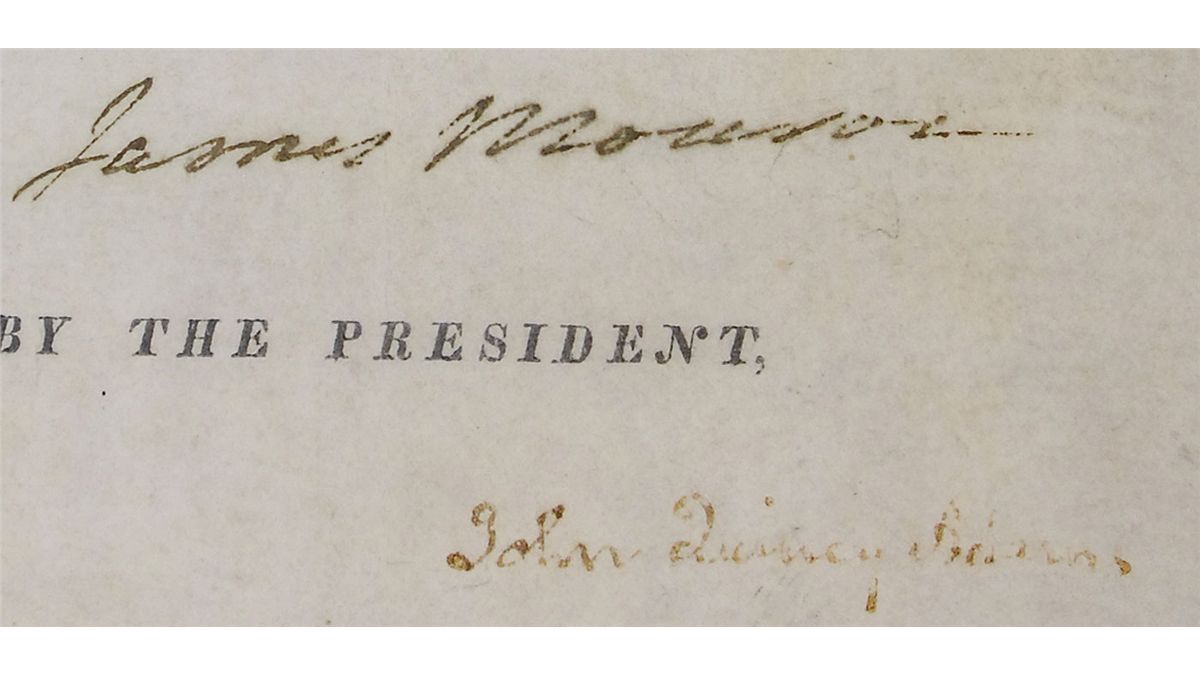 James Monroe
BY THE PRESIDENT,
John Quincy Adams,